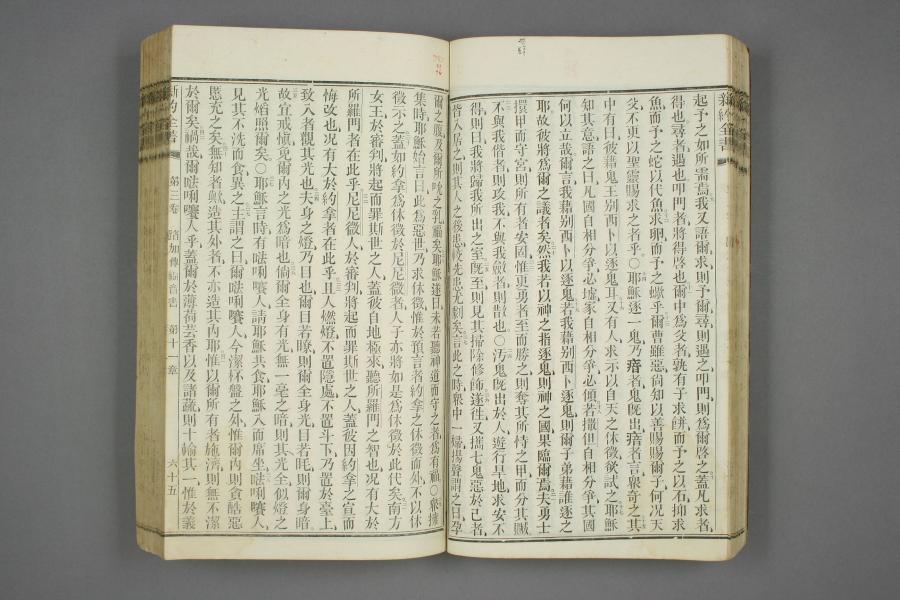 起予之如所需焉我又語爾求則予爾尋則遇之叩門則爲爾啓之蓋凡求者
得也尋者遇也叩門者將得啓也爾中爲父者孰有子求餅而予之以石抑求
魚而予之蛇以代魚求卵而予之蠍乎爾曹雖惡尙知以善賜賜爾子何况天
父不更以聖靈賜求之者乎○耶穌逐一鬼乃瘖者鬼旣出瘖者言衆奇之其
中有曰彼藉鬼王別西卜以逐鬼耳又有人求示以自天之休徵欲試之耶穌
知其意語之曰凡國自相分爭必墟家自相分爭必傾若撒但自相分爭其國
何以立哉爾言我藉別西卜以逐鬼若我藉別西卜逐鬼則爾子弟藉誰逐之
耶故彼將爲爾之議者矣然我若以神之指逐鬼則神之國果臨爾焉夫勇士
擐甲而守宮則所有者安固惟更勇者至而勝之則奪其所恃之甲而分其贓
不與我偕者則攻我不與我斂者則散也○汚鬼旣出於人遊行旱地求安不
得則曰我將歸我所出之室旣至則見其掃除修飾遂往又攜七鬼惡於己者
皆入居之則其人之後患較先患尤劇矣言此之時衆中一婦揚聲謂之曰孕
爾之腹及爾所吮之乳福矣耶穌遂曰未若聽神道而守之者爲有福○衆擁
集時耶穌始言曰此爲惡世乃求休徵惟於預言者約拿之休徵而外不以休
徵示之蓋如約拿爲休徵於尼尼微者人子亦將如是爲休徵於此代矣南方
女王於審判將起而罪斯世之人蓋彼自地極來聽所羅門之智也况有大於
所羅門者在此乎尼尼微人於審判將起而罪斯世之人蓋彼因約拿之宣而
悔改也况有大於約拿者在此乎且人燃燈不置隱處不置斗下乃置於臺上
致入者觀其光也夫身之燈乃目也爾目若瞭則爾全身光目若眊則爾身暗
故宜戒愼免爾內之光爲暗也倘爾全身有光無一毫之暗則其光全似燈之
光熖照爾矣○耶穌言時有𠵽唎嚽人請耶穌共食耶穌入而席坐𠵽唎嚽人
見其不洗而食異之主謂之曰爾𠵽唎嚽人今潔杯盤之外惟爾內則貪酷惡
慝充之矣無知者歟造其外者不亦造其內耶惟以爾所有者施濟則無不潔
於爾矣禍哉爾𠵽唎嚽人乎蓋爾於薄荷芸香以及諸蔬則十輸其一惟於義
新約全書 第三卷 路加傳福音書 第十一章 六十五